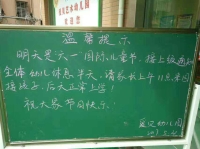 温馨提示
明天是六一国际儿童节，接上级通知
全体幼儿休息半天，请家长上午11点来园
接孩子，后天正常上学！
祝大家节日快乐！
幼儿园